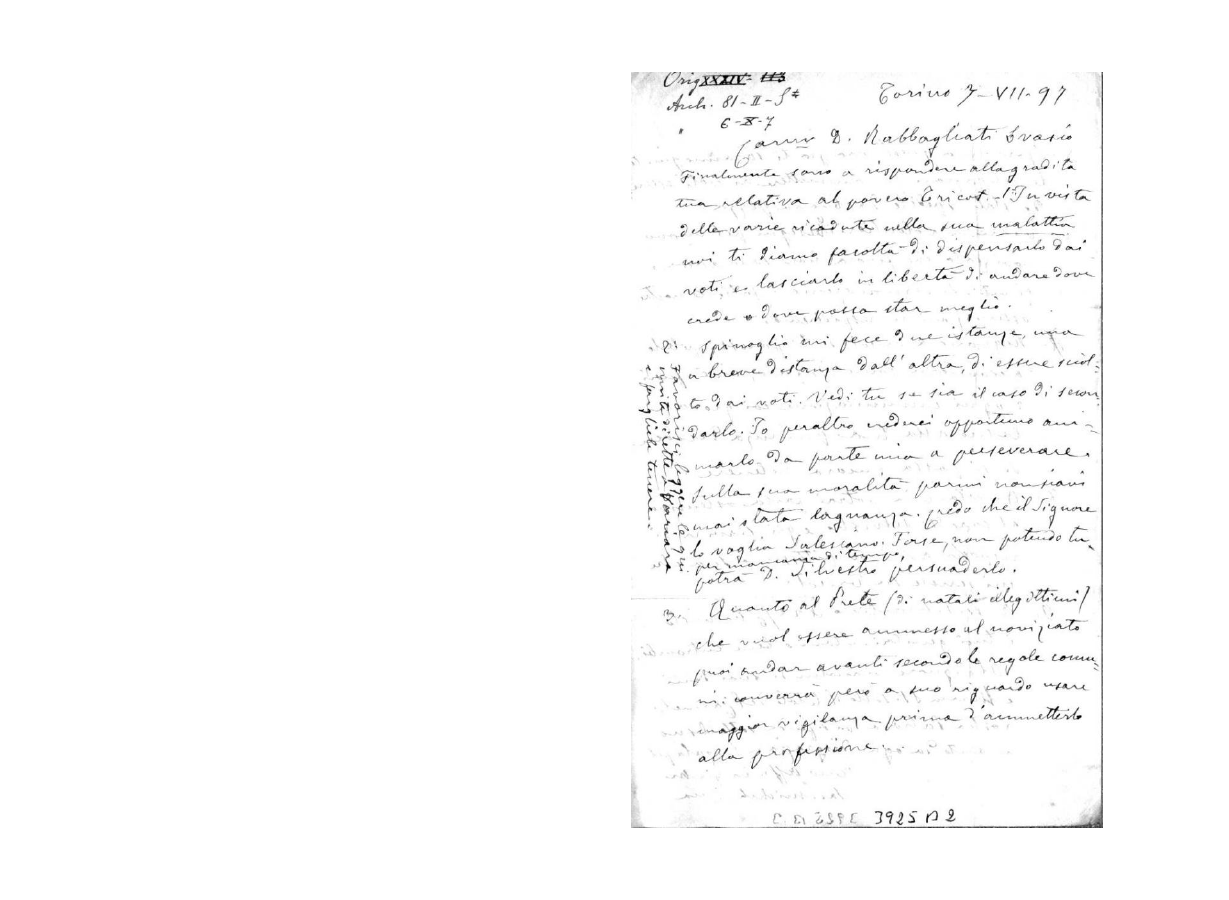 Orig XXXIV- 113
Arch. 81-II-S#
" 6-X-7
Torino 7-VII-97
Carmo D. Rabbagliati Evasio
Finalmente sono a rispondere alla gradita
tua relativa al povero Tricot. 1° In vista
delle varie ricadute nella sua malattia
noi ti diamo facoltà di dispensarlo dai
voti e lasciarlo in libertà di andare dove
crede o dove possa star meglio.
2° Spinoglio mi fece due istanze, una
a breve distanza dall'altra, di essere sciol-
to dai voti. Vedi tu se sia il caso di secon
darlo. Io peraltro crederei opportuno ani-
marlo da parte mia a perseverare.
Sulla sua moralità parmi non siavi
mai stata lagnanza. Credo che il Signore
lo voglia Salesiano. Forse, non potendo tu,
per mancanza di tempo,
potrà D. Silvestro persuaderlo.
3. Quanto al Prete (di natali illegittimi)
che vuol essere ammesso al noviziato
puoi andar avanti secondo le regole comu-
ni: converrà però a suo riguardo usare
maggior vigilanza prima d'ammetterlo
alla professione.
Favorisci leggere le qui
unite dirette a
e fargliele tenere.
3925 B 2